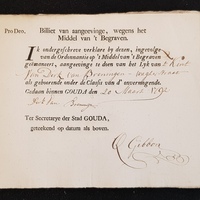 Pro Deo. Billiet van aangeevinge, wegens het
Middel van 't Begraven.
Ik ondergeschreve verklare by dezen, ingevolge
van de Ordonnantie op 't Middel van 't Begraven
geëmaneert, aangeevinge te dien van het Lyk van 't Kind
van Dirk van
als gehoorende onder de Classis van d' onvermogende.
Gedaan binnen GOUDA den 20 Maart 1792
Dirk van
Ter Secretarye der Stad GOUDA,
geteekend op datum als boven.